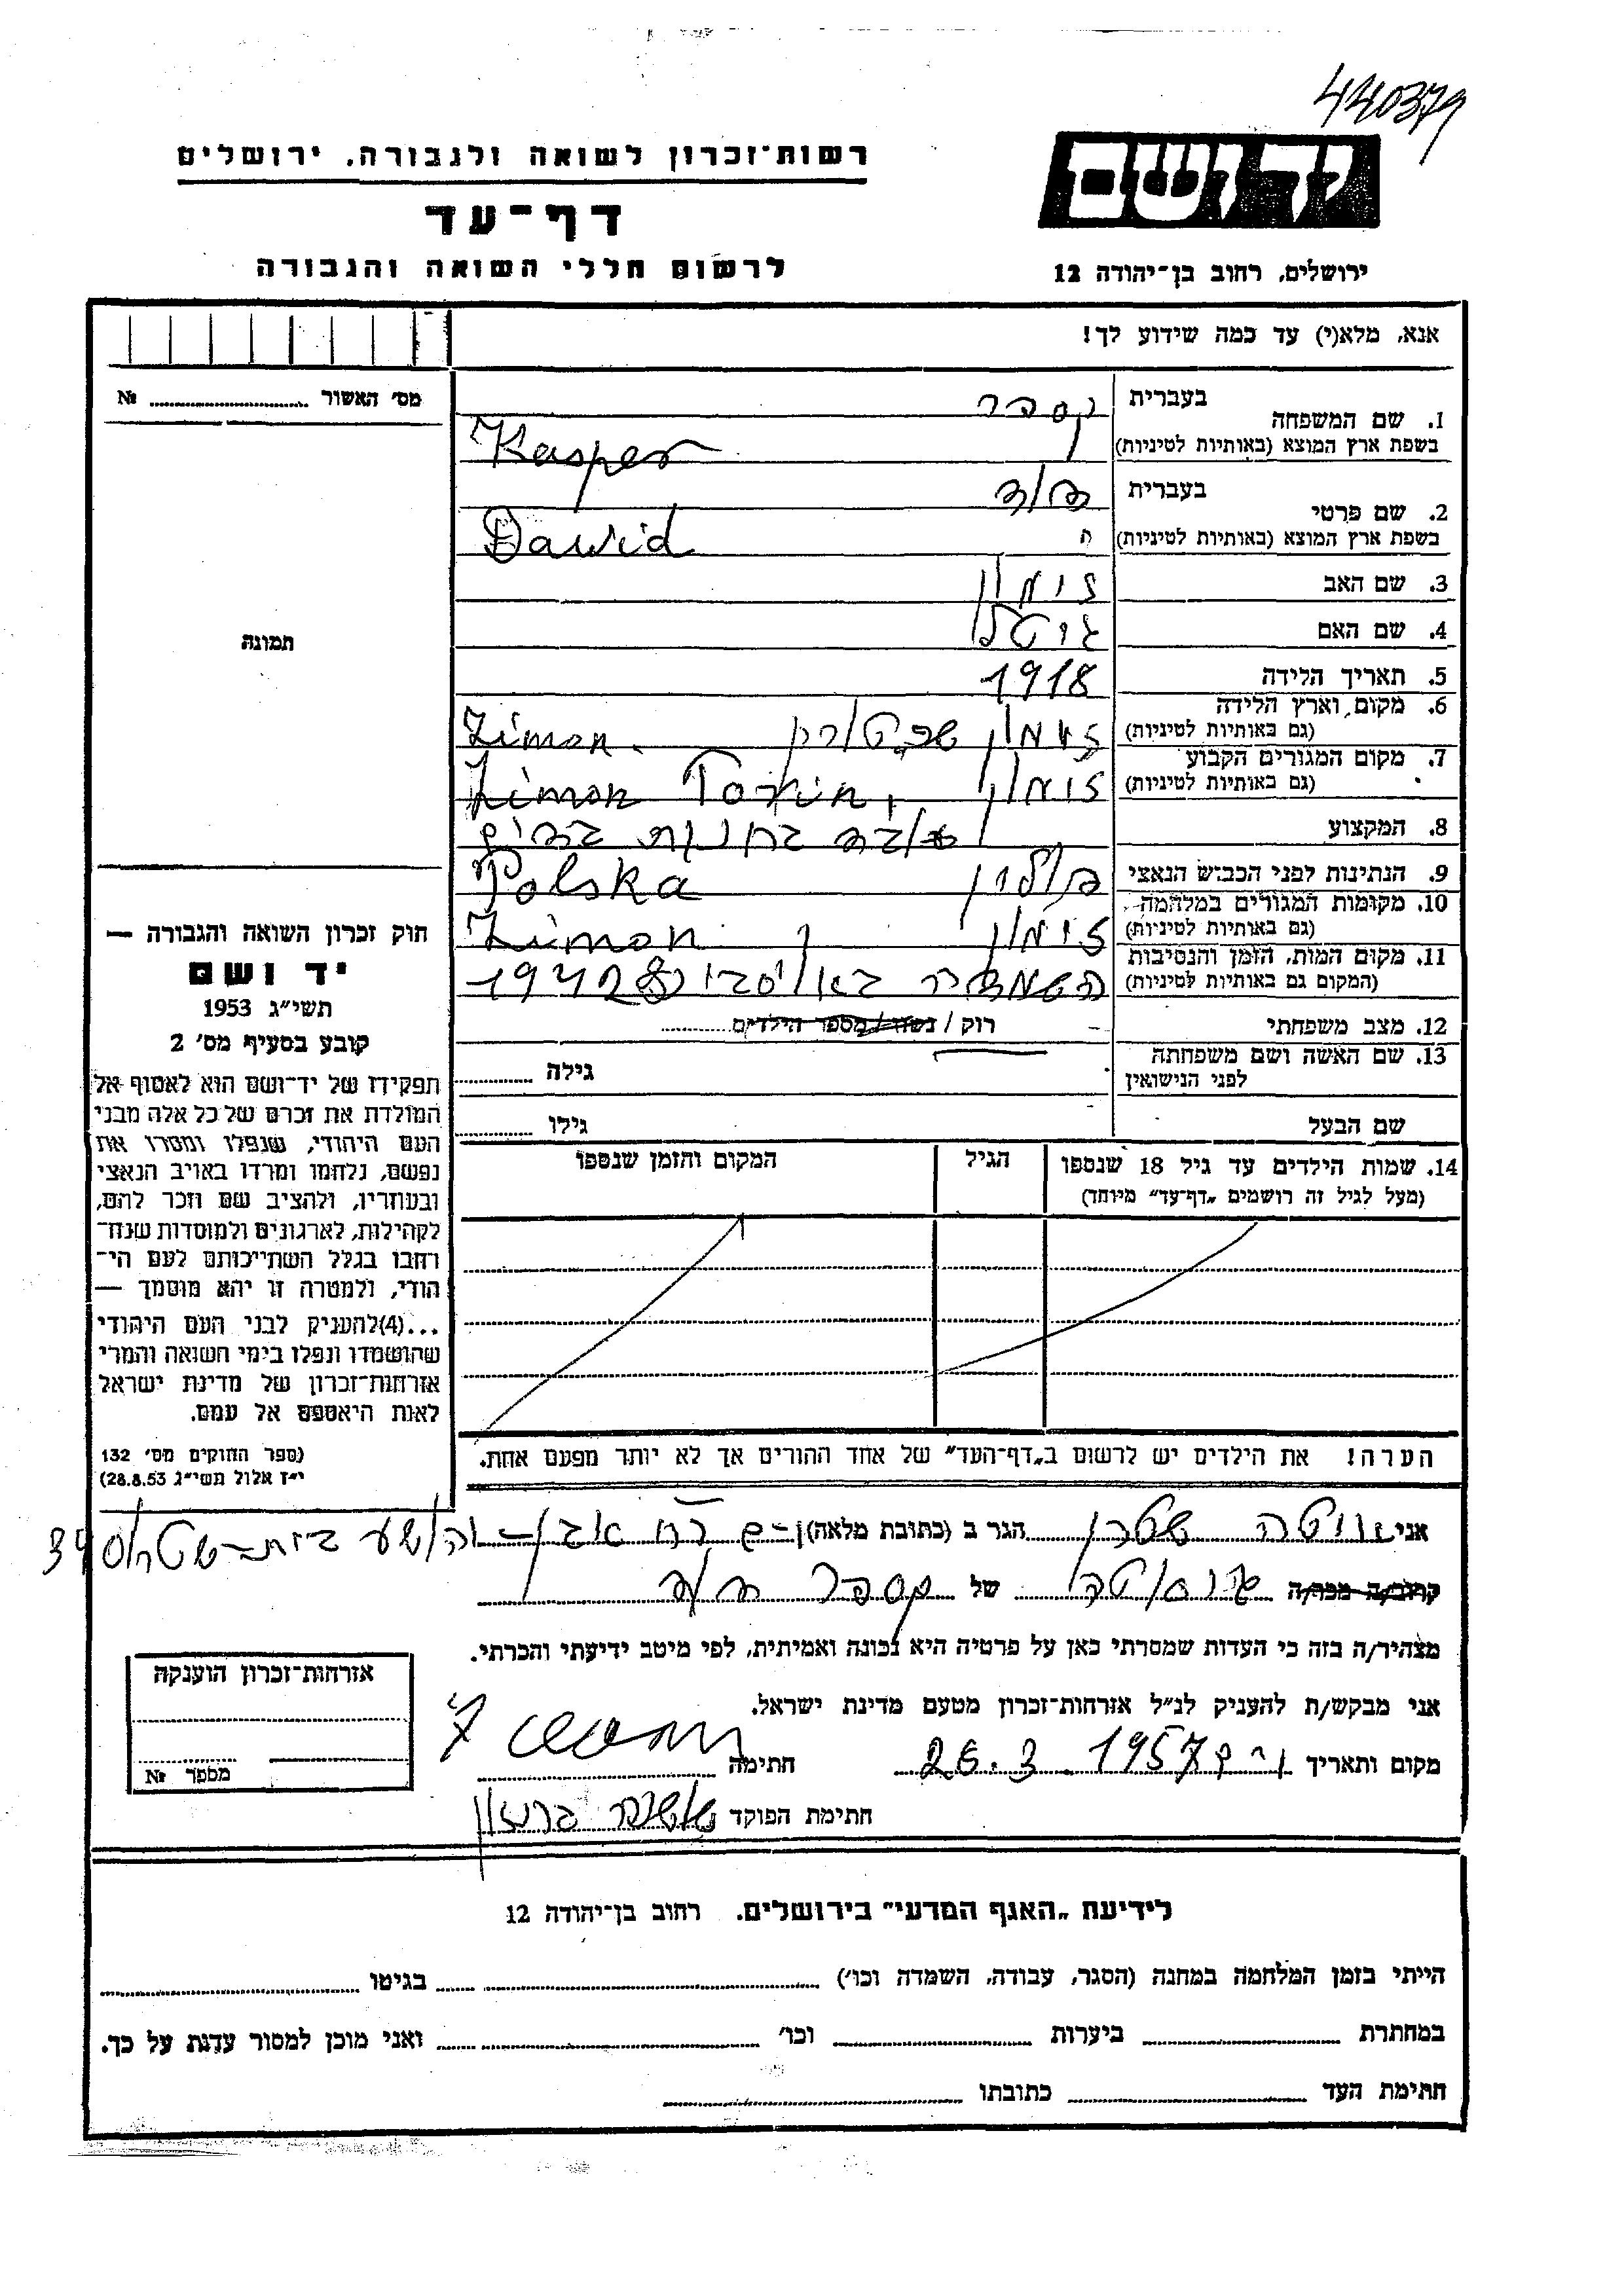 440379
רשות־זכרון לשואה ולגבורה, ירושלים
יד ושם
דף־עד
לרשום חללי השואה והגבורה
ירושלים, רחוב בן־יהודה 12
אנא, מלא(י) עד כמה שידוע לך!
מס׳ האשור № 
1. שם המשפחה בעברית קספר
בשפת ארץ המוצא (באותיות לטיניות) Kasper
2. שם פרטי בעברית דוד
בשפת ארץ המוצא (באותיות לטיניות) Dawid
3. שם האב
4. שם האם גיטל
תמונה
5. תאריך הלידה 1918
6. מקום וארץ הלידה
(גם באותיות לטיניות) Zimon.
7. מקום המגורים הקבוע
(גם באותיות לטיניות) Zimon
8. המקצוע עובד בחנות
9. הנתינות לפני הכבוש הנאצי פולין Polska
10. מקומות המגורים במלחמה
(גם באותיות לטיניות) Zimon
11. מקום המות, הזמן והנסיבות
(המקום גם באותיות לטיניות) 1942
12. מצב משפחתי רוק / נשוי / מספר הילדים
13. שם האשה ושם משפחתה גילה
לפני הנישואין
שם הבעל גילו
14. שמות הילדים עד גיל 18 שנספו הגיל המקום והזמן שנספו
(מעל לגיל זה רושמים „דף־עד״ מיוחד)
הערה! את הילדים יש לרשום ב„דף־העד״ של אחד ההורים אך לא יותר מפעם אחת.
חוק זכרון השואה והגבורה —
יד ושם
תשי״ג 1953
קובע בסעיף מס׳ 2
תפקידו של יד־ושם הוא לאסוף אל
המולדת את זכרם של כל אלה מבני
העם היהודי, שנפלו ומסרו את
נפשם, נלחמו ומרדו באויב הנאצי
ובעוזריו, ולהציב שם וזכר להם,
לקהילות, לארגונים ולמוסדות שנח־
רבו בגלל השתייכותם לעם הי־
הודי, ולמטרה זו יהא מוסמך —
...(4)להעניק לבני העם היהודי
שהושמדו ונפלו בימי השואה והמרי
אזרחות־זכרון של מדינת ישראל
לאות היאספם אל עמם.
(ספר החוקים מס׳ 132
י״ז אלול תשי״ג 28.8.53)
אני שטרן הגר ב (כתובת מלאה)
קרוב/ה מכר/ה של קספר דוד
מצהיר/ה בזה כי העדות שמסרתי כאן על פרטיה היא נכונה ואמיתית, לפי מיטב ידיעתי והכרתי.
אני מבקש/ת להעניק לנ״ל אזרחות־זכרון מטעם מדינת ישראל.
מקום ותאריך 26.3.1957 חתימה
חתימת הפוקד
אזרחות־זכרון הוענקה
מספר №
לידיעת „האגף המדעי״ בירושלים, רחוב בן־יהודה 12
הייתי בזמן המלחמה במחנה (הסגר, עבודה, השמדה וכו׳) בגיטו
במחתרת ביערות וכו׳ ואני מוכן למסור עדות על כך.
חתימת העד כתובתו